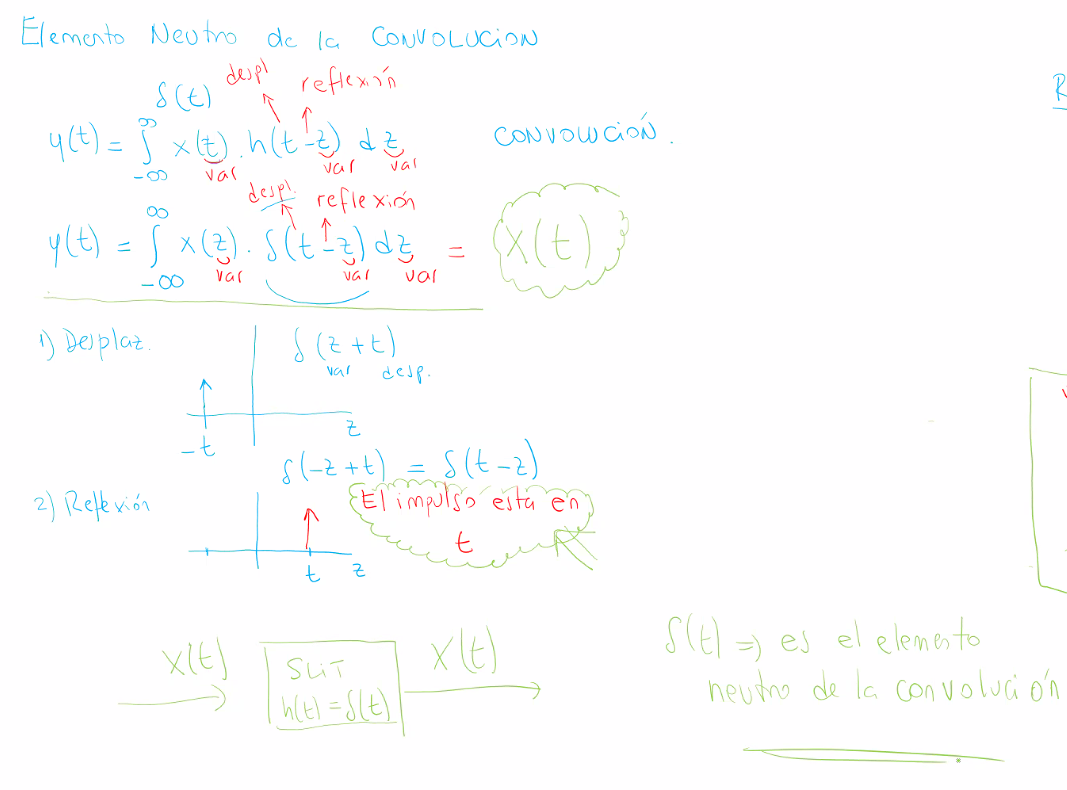 Elemento Neutro de la CONVOLUCION
despl reflexión
δ(t)
y(t) = ∫_{-∞}^{∞} x(z) . h(t-z) dz
CONVOLUCIÓN.
var var var
despl. reflexión
y(t) = ∫_{-∞}^{∞} x(z) . δ(t-z) dz = x(t)
var var var
1) Desplaz.
δ(z+t)
var desp.
z
-t
δ(-z+t) = δ(t-z)
2) Reflexión
El impulso está en
t
t z
x(t)
SLIT
h(t) = δ(t)
x(t)
δ(t) => es el elemento
neutro de la convolución
R